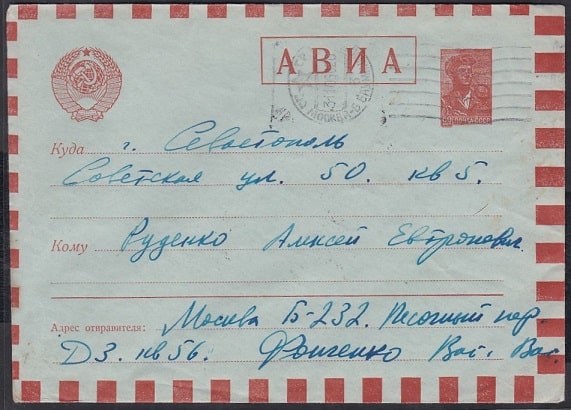 АВИА
МОСКВА
Куда г. Севастополь
Советская ул. 50. кв 5.
Кому Руденко Алексей
Адрес отправителя: Москва Б-232. Песочный пер.
Д 3. кв 56. Фонченко Вас. Вас.